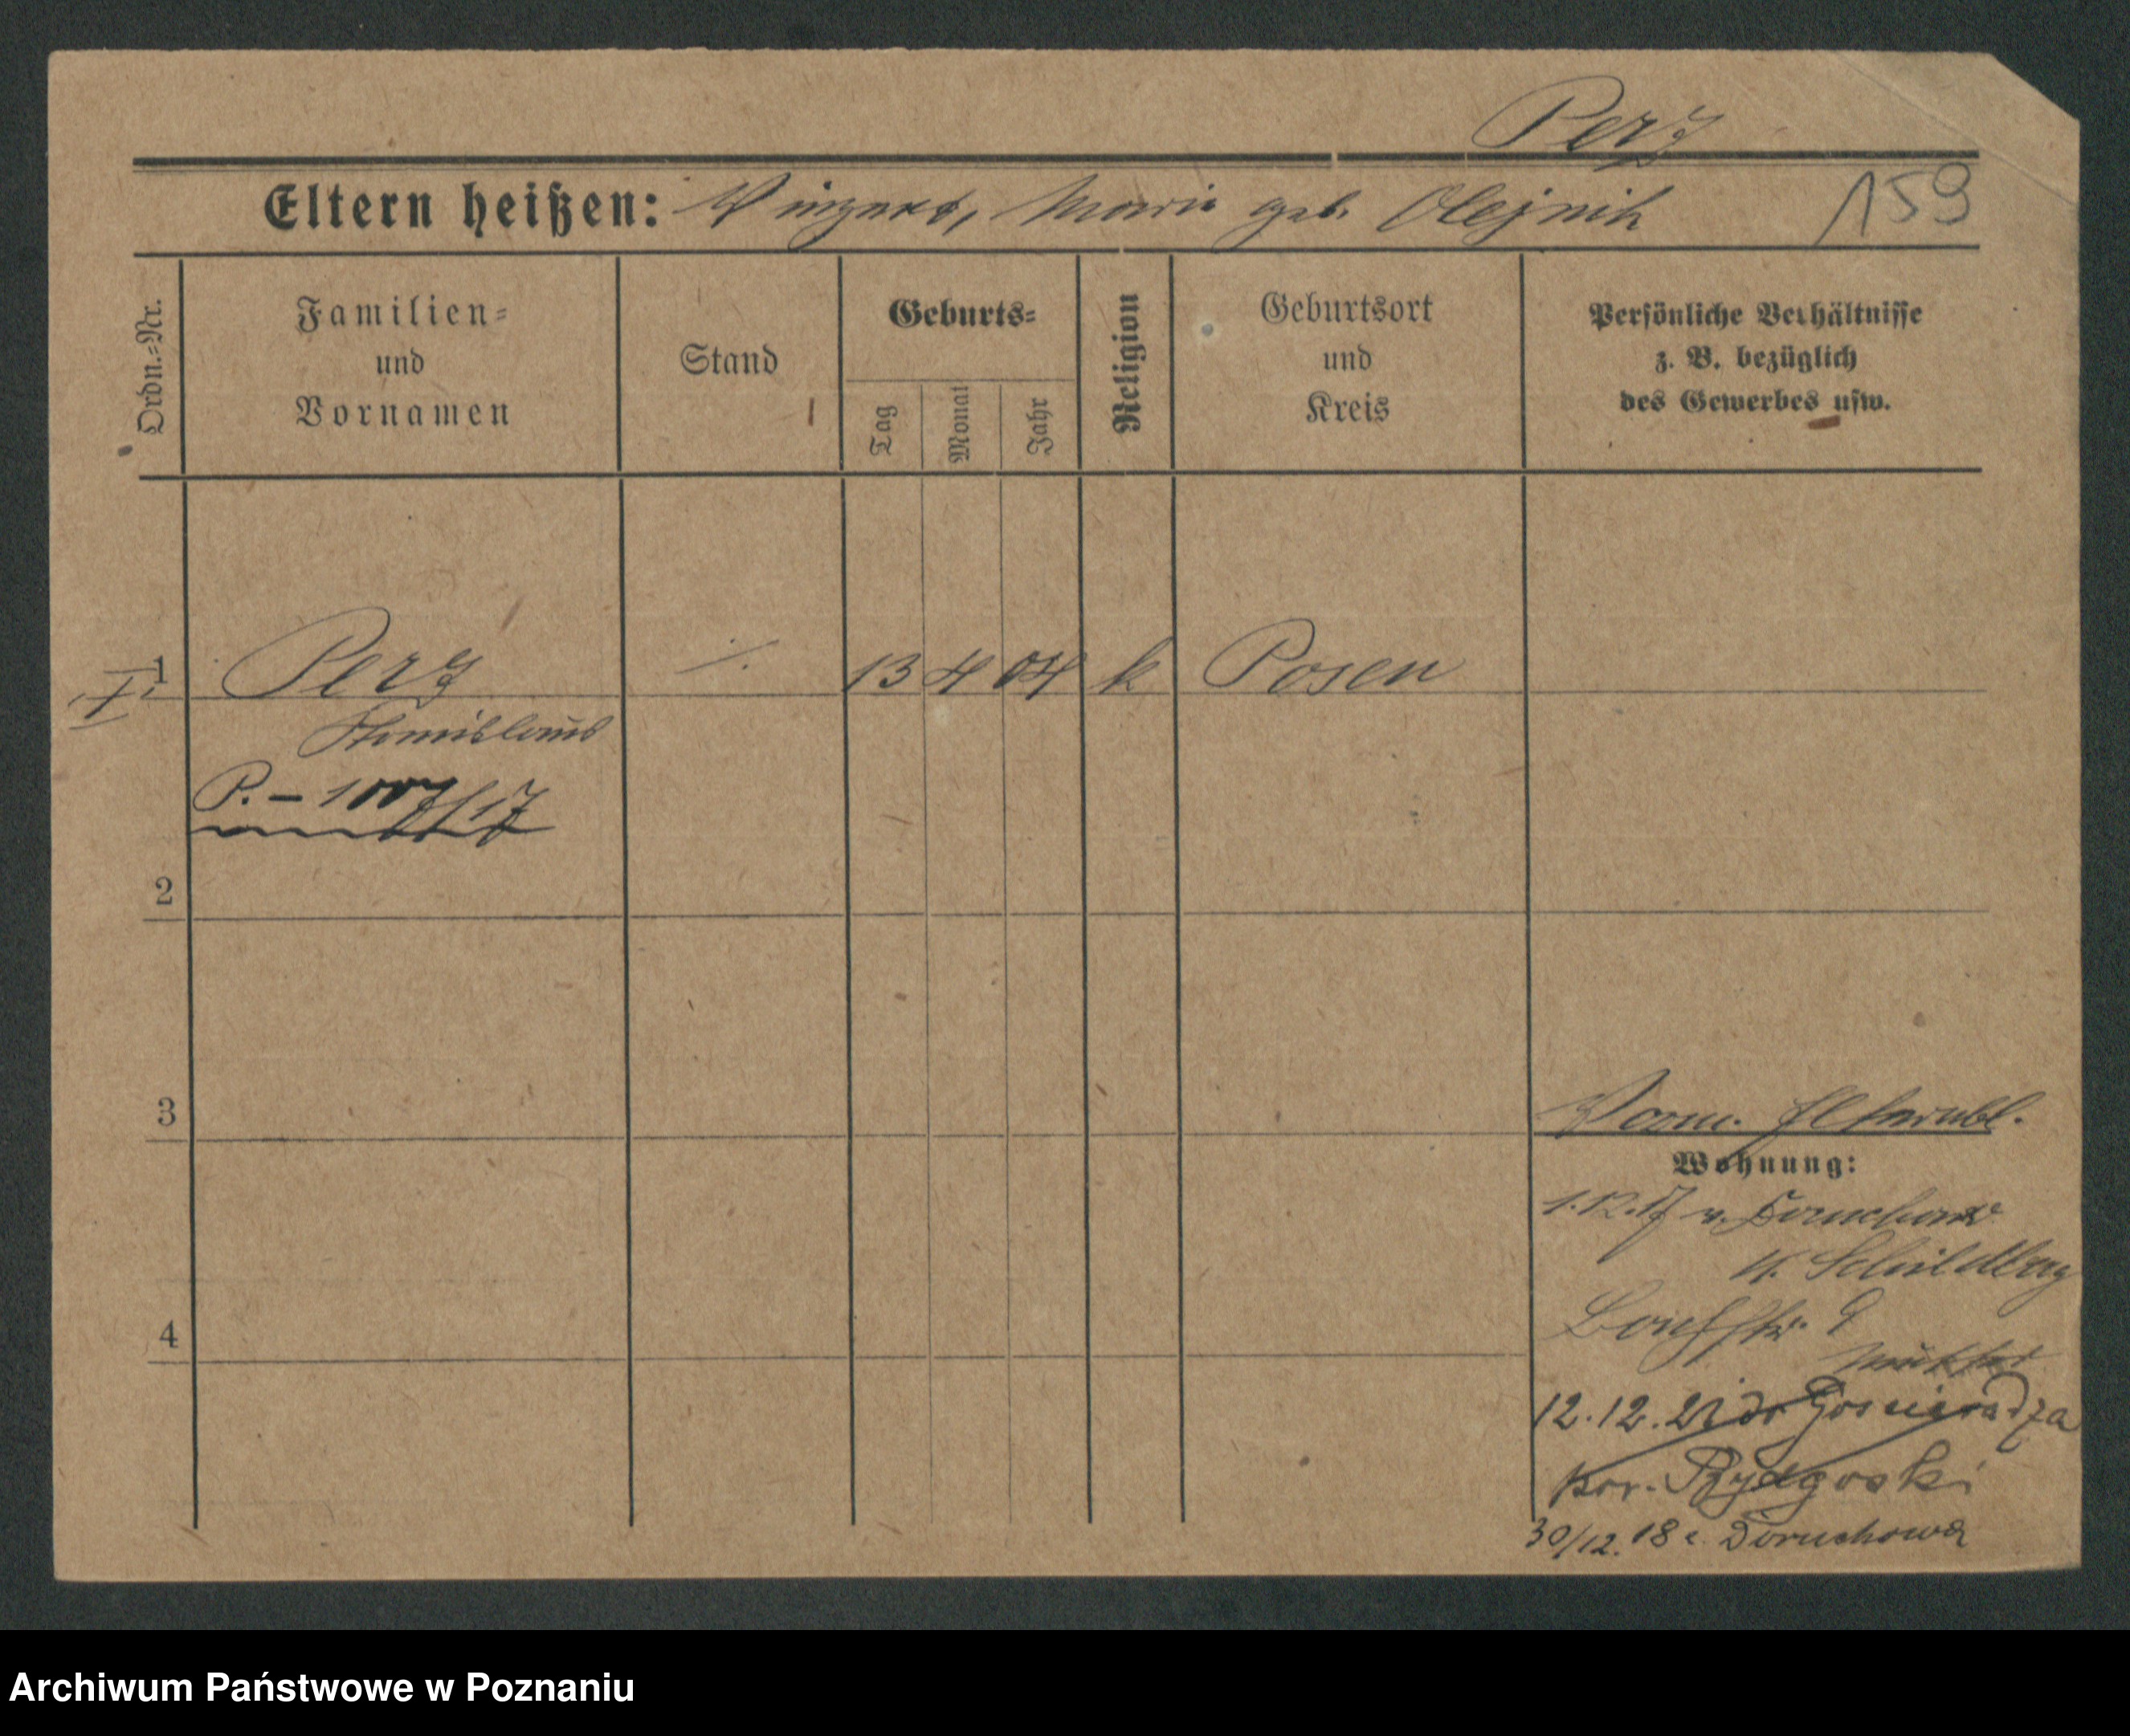 Perz
Eltern heißen: Vinzent, Marie geb. Olejnik 159
Ordn.-Nr.
Familien-
und
Vornamen
Stand
Geburts-
Tag
Monat
Jahr
Religion
Geburtsort
und
Kreis
Persönliche Verhältnisse
z. B. bezüglich
des Gewerbes usw.
1 Perz ./. 13 4 04 k Posen
I.
Stanislaus
P. – 1007/17
2
3
Vorm.
Wohnung:
1.12.17 v. Doruchow
K. Schildberg
9
Mutter
12.12.21 do Goscieradza
pow. Bydgoski
4
30/12.18 z. Doruchowa
Archiwum Państwowe w Poznaniu